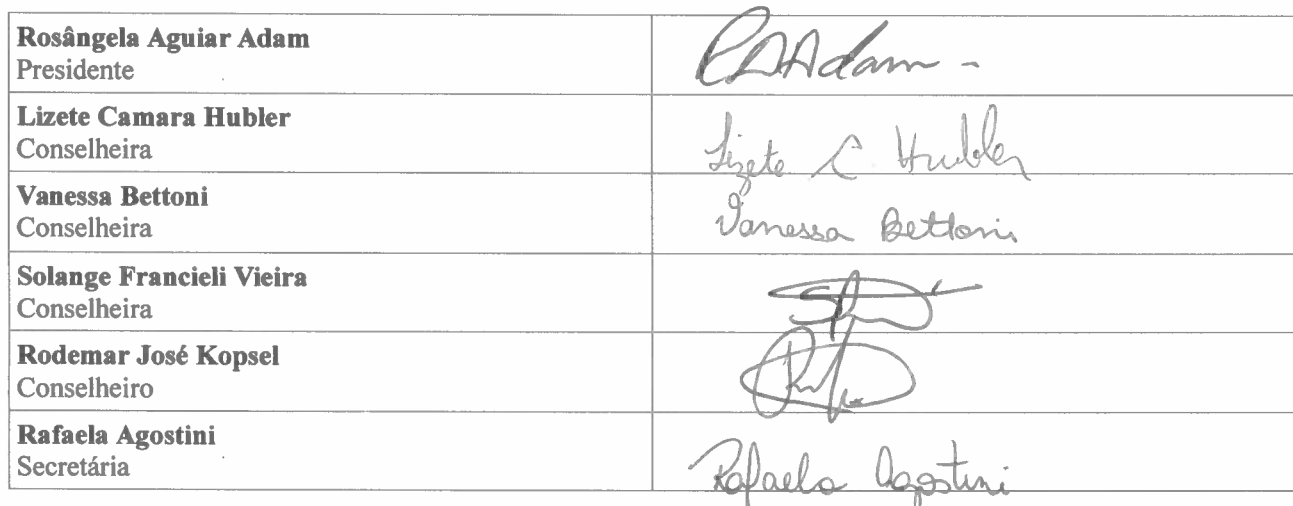 Rosângela Aguiar Adam
Presidente
RAAdam -
Lizete Camara Hubler
Conselheira
Lizete C. Hubler
Vanessa Bettoni
Conselheira
Vanessa Bettoni
Solange Francieli Vieira
Conselheira
Rodemar José Kopsel
Conselheiro
Rafaela Agostini
Secretária
Rafaela Agostini